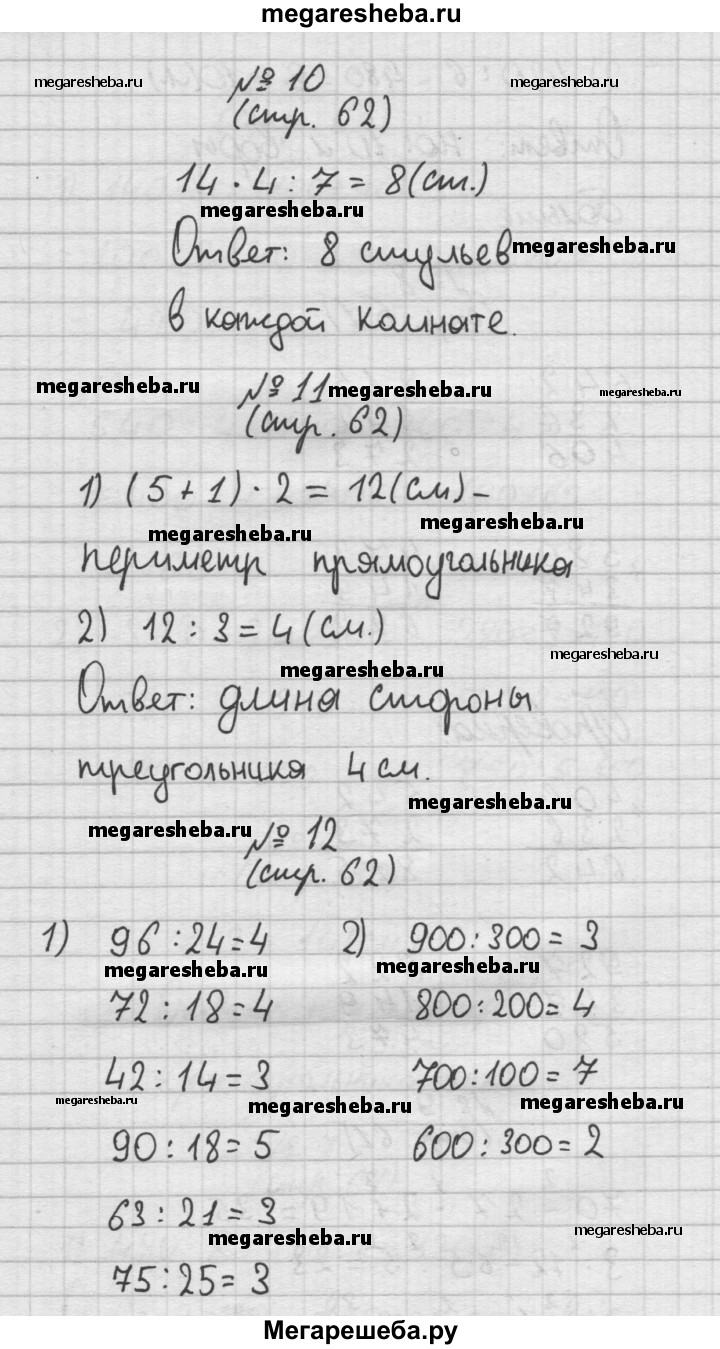 megaresheba.ru
№ 10
megaresheba.ru megaresheba.ru
(стр. 62)
14 · 4 : 7 = 8 (ст.)
megaresheba.ru
Ответ: 8 стульев megaresheba.ru
в каждой комнате.
№ 11
megaresheba.ru megaresheba.ru megaresheba.ru
(стр. 62)
1) (5 + 1) · 2 = 12 (см) –
megaresheba.ru megaresheba.ru
периметр прямоугольника
2) 12 : 3 = 4 (см.)
megaresheba.ru megaresheba.ru
Ответ: длина стороны
треугольника 4 см.
megaresheba.ru
megaresheba.ru № 12
(стр. 62)
1) 96 : 24 = 4 2) 900 : 300 = 3
megaresheba.ru megaresheba.ru
72 : 18 = 4 800 : 200 = 4
42 : 14 = 3 700 : 100 = 7
megaresheba.ru megaresheba.ru megaresheba.ru
90 : 18 = 5 600 : 300 = 2
63 : 21 = 3
megaresheba.ru megaresheba.ru
75 : 25 = 3
Мегарешеба.ру